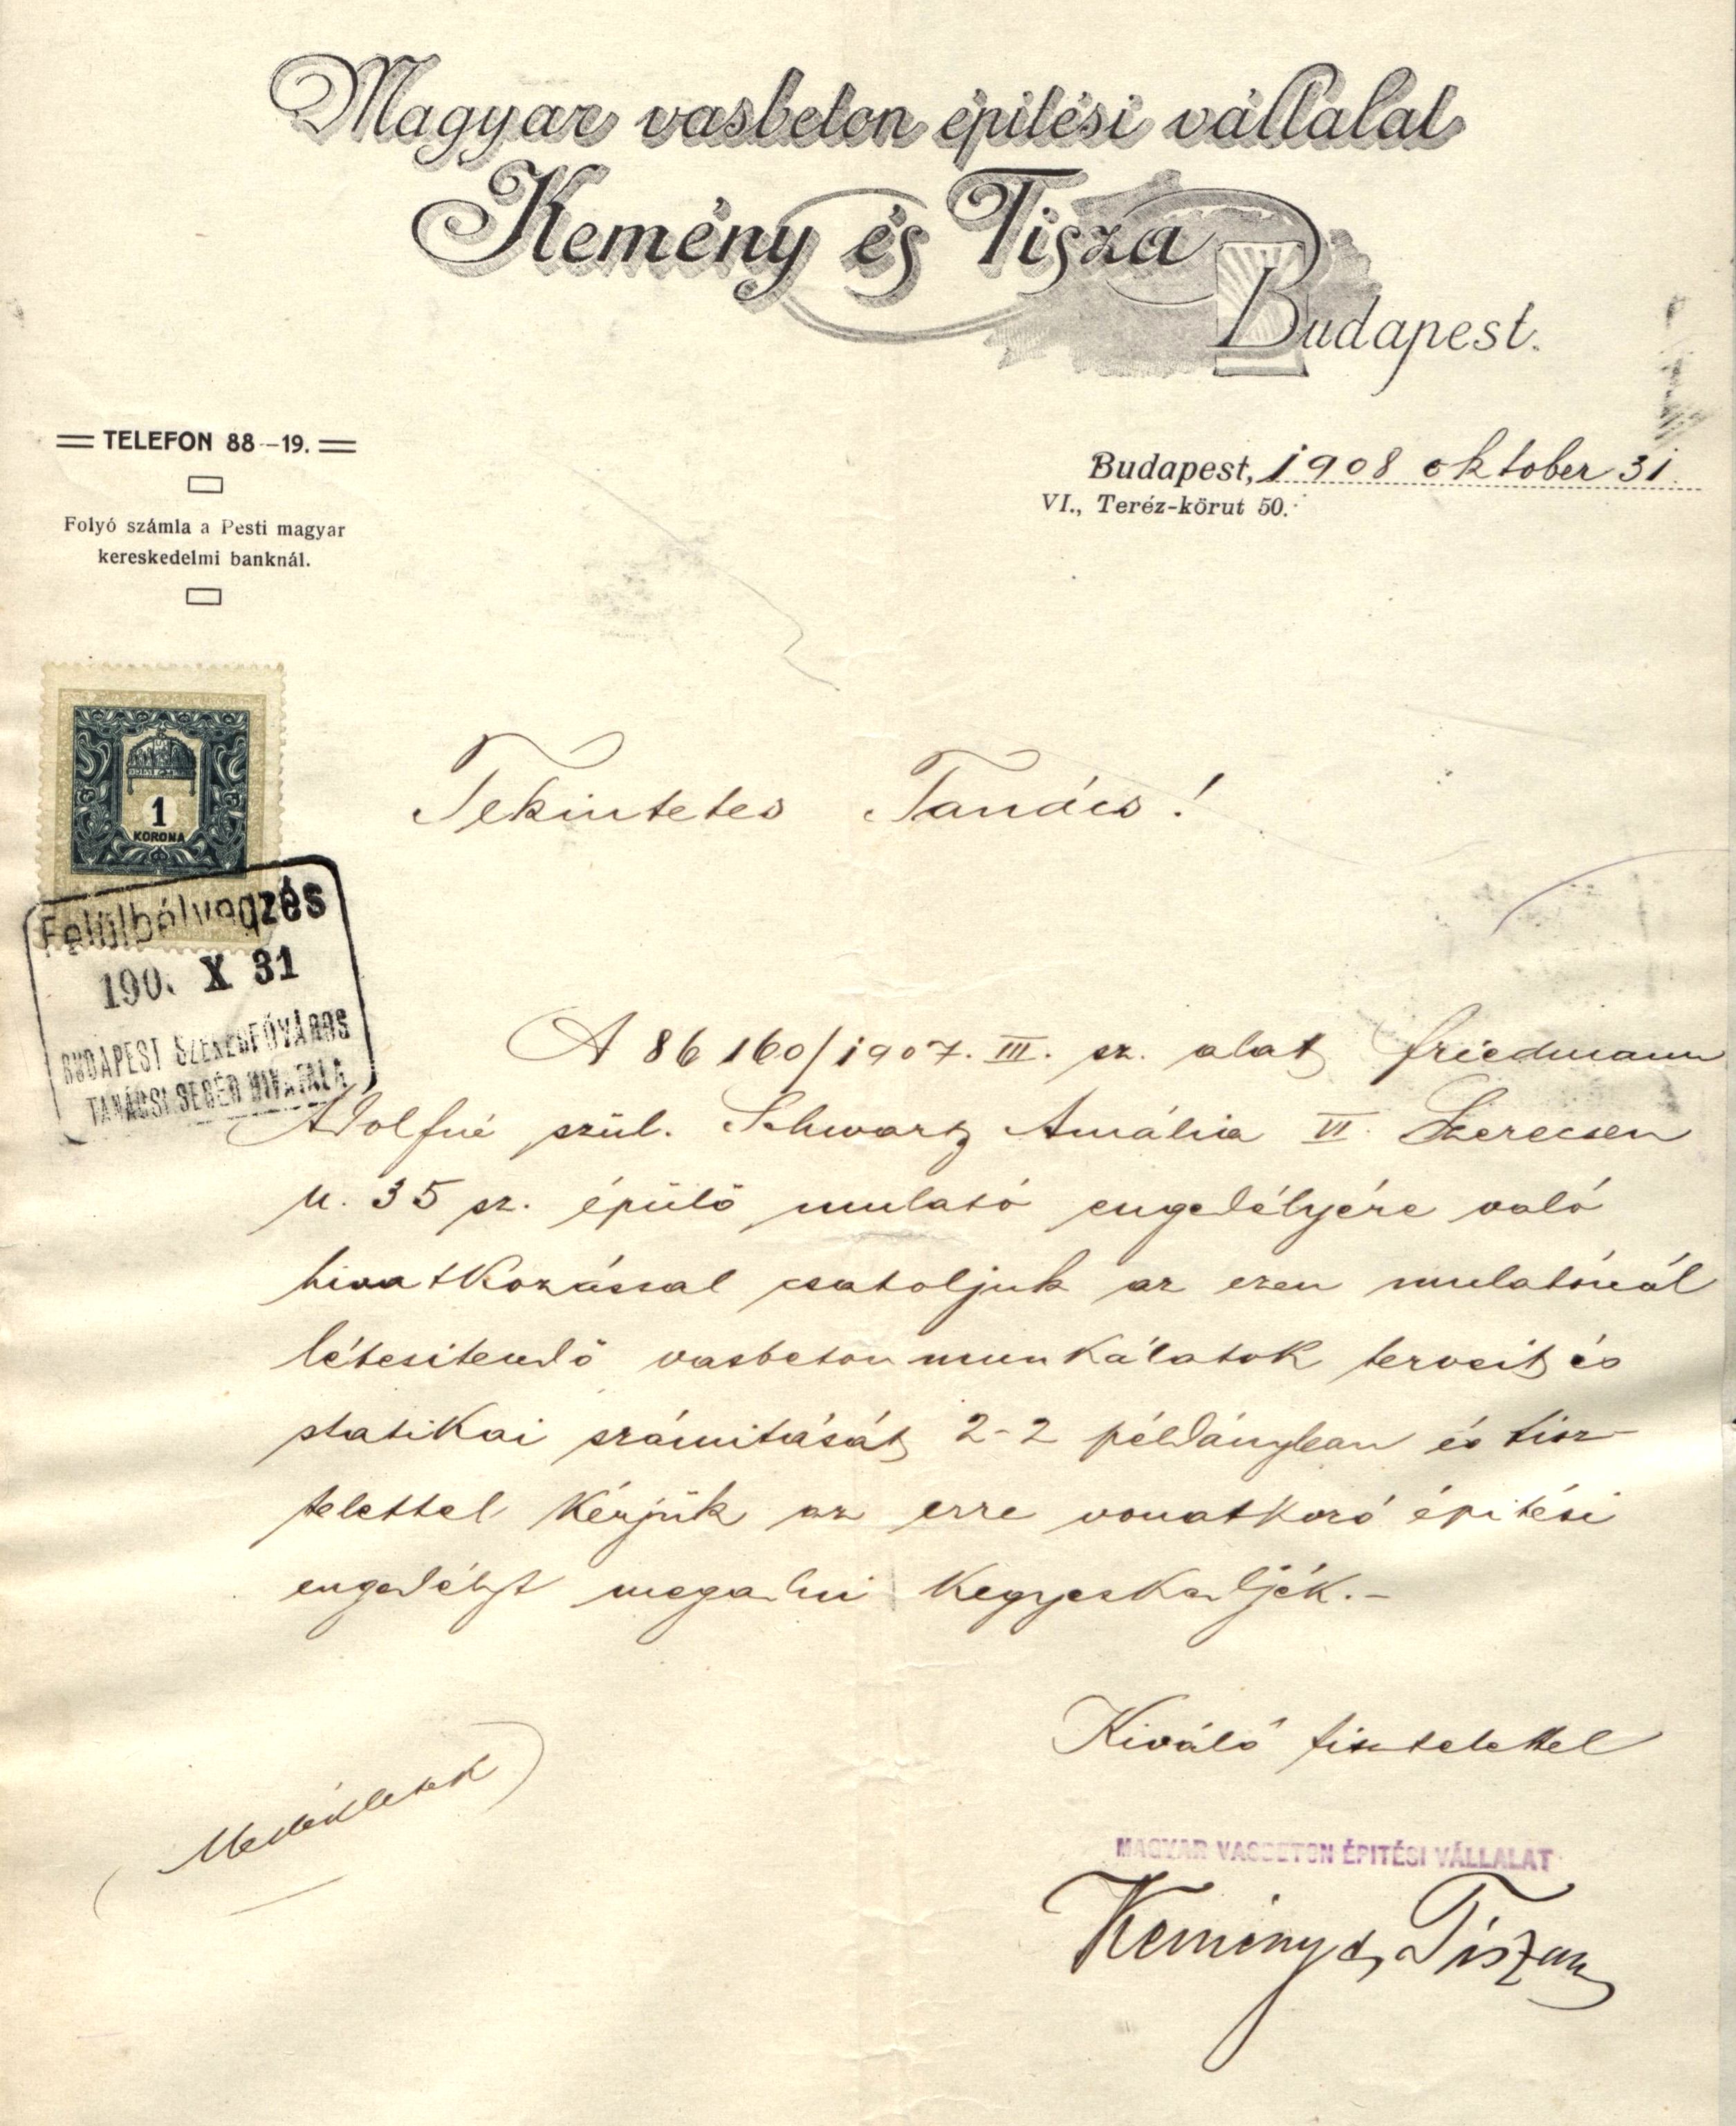 Magyar vasbeton épitési vállalat
Kemény és Tisza
Budapest.
TELEFON 88-19.
Folyó számla a Pesti magyar
kereskedelmi banknál.
Budapest, 1908 oktober 31
VI., Teréz-körut 50.
1
KORONA
Felülbélyegzés
190. X 31
BUDAPEST SZÉKESFŐVÁROS
TANÁCSI SEGÉD HIVATALA
Tekintetes Tanács!
A 86160/1907. III. sz. alatt Friedmann
Adolfné szül. Schwartz Amália VI. Szerecsen
u. 35 sz. épülő mulató engedélyére való
hivatkozással csatoljuk az ezen mulatónál
létesitendő vasbetonmunkálatok terveit és
statikai számitását 2-2 példányban és tisz-
telettel kérjük az erre vonatkozó épitési
engedélyt megadni kegyeskedjék.-
Kiváló tisztelettel
MAGYAR VASBETON ÉPITÉSI VÁLLALAT
Kemény és Tisza